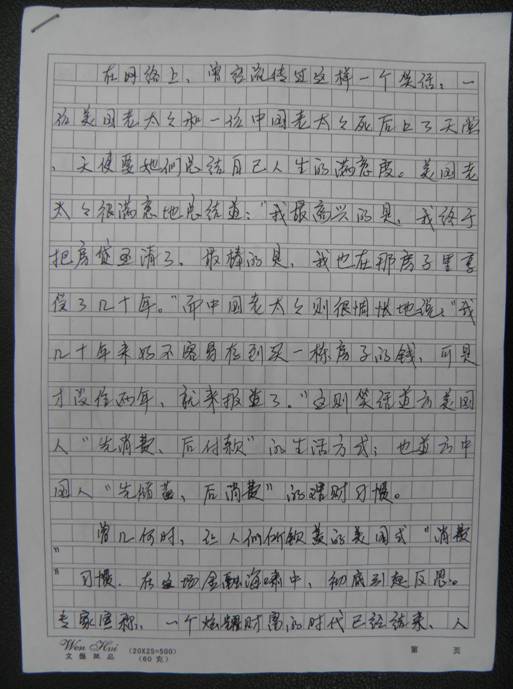 在网络上，曾经流传过这样一个笑话：一
位美国老太々和一位中国老太々死后上了天堂
、天使要她们总结自己人生的满意度。美国老
太々很满意地总结道："我最高兴的是，我终于
把房贷还清了。最棒的是，我也在那房子里享
受了几十年。"而中国老太々则很惆怅地说："我
几十年来好不容易存到买一栋房子的钱，可是
才没住两年，就来报道了。"这则笑话道出美国
人"先消费、后付款"的生活方式；也道出中
国人"先储蓄，后消费"的理财习惯。
曾几何时，让人们所钦羡的美国式"消费
"
"习惯．在这场金融海啸中，彻底引起反思。
专家宣称，一个炫耀财富的时代已经结束、人
Wen Hui
文 薈 紙 品
(20X25=500)
(60 克)
第 页